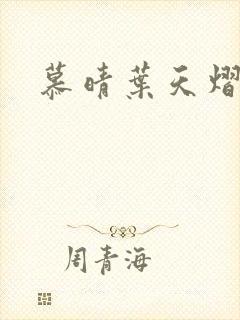 慕晴葉天熠
周青海